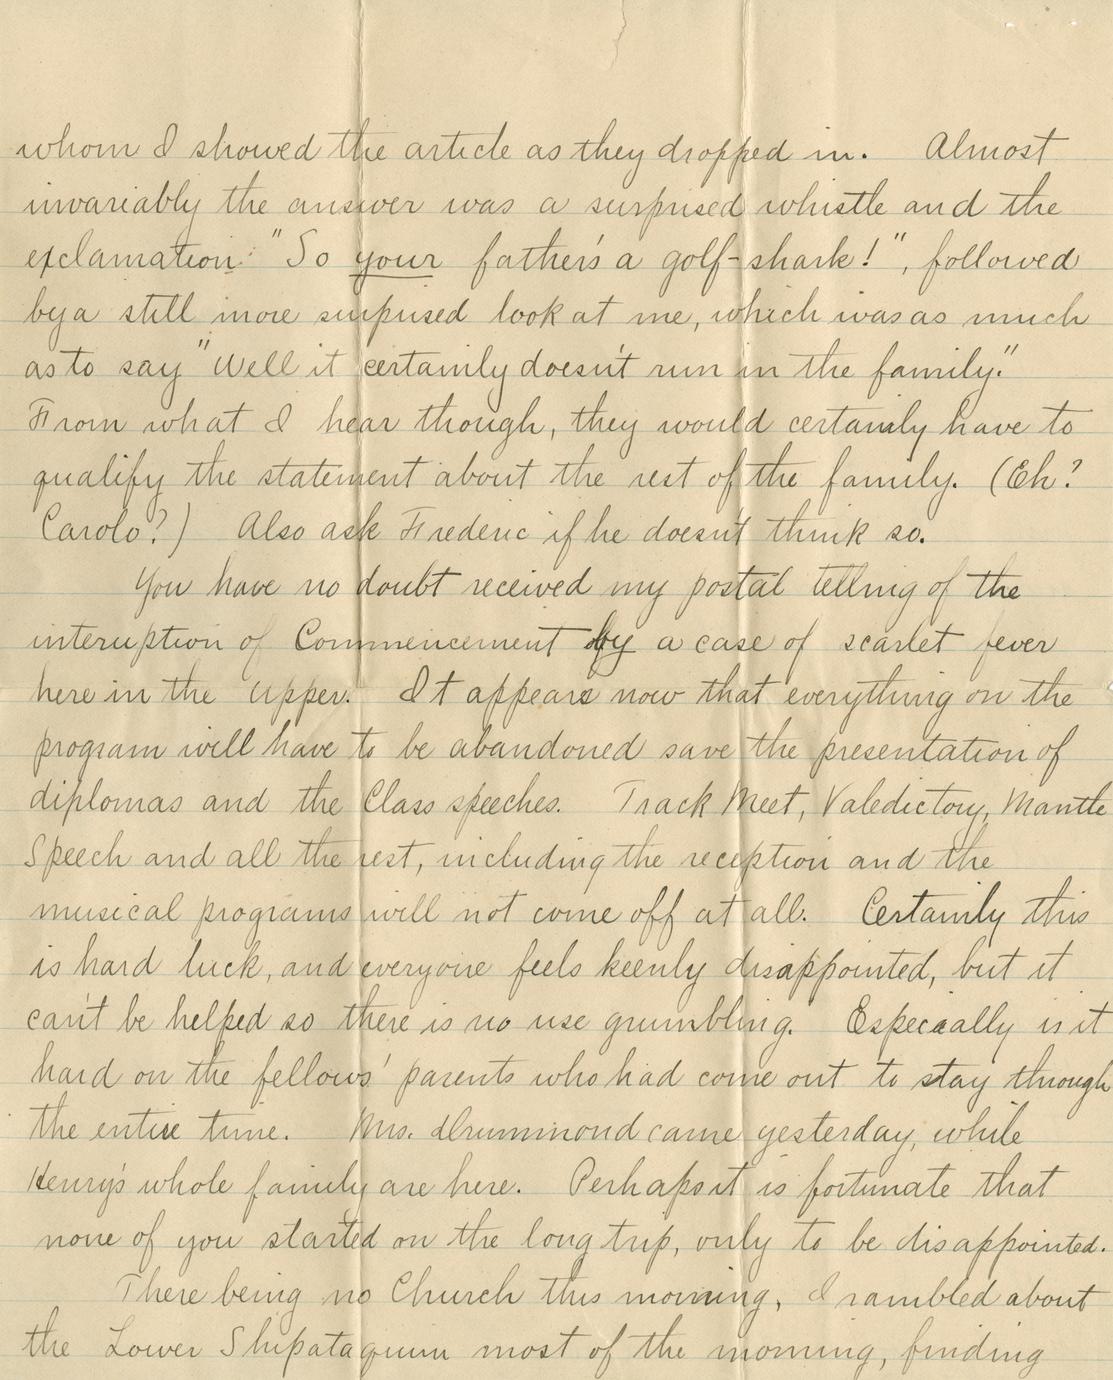 whom I showed the article as they dropped in. Almost
invariably the answer was a surprised whistle and the
exclamation: "So your father's a golf-shark!", followed
by a still more surprised look at me, which was as much
as to say "Well it certainly doesn't run in the family."
From what I hear though, they would certainly have to
qualify the statement about the rest of the family. (Eh?
Carolo?) Also ask Frederic if he doesn't think so.
You have no doubt received my postal telling of the
interuption of Commencement by a case of scarlet fever
here in the Upper. It appears now that everything on the
program will have to be abandoned save the presentation of
diplomas and the Class speeches. Track Meet, Valedictory, Mantle
Speech and all the rest, including the reception and the
musical programs will not come off at all. Certainly this
is hard luck, and everyone feels keenly disappointed, but it
can't be helped so there is no use grumbling. Especially is it
hard on the fellows' parents who had come out to stay through
the entire time. Mrs. Drummond came yesterday, while
Henry's whole family are here. Perhaps it is fortunate that
none of you started on the long trip, only to be disappointed.
There being no Church this morning, I rambled about
the Lower Shipataquum most of the morning, finding